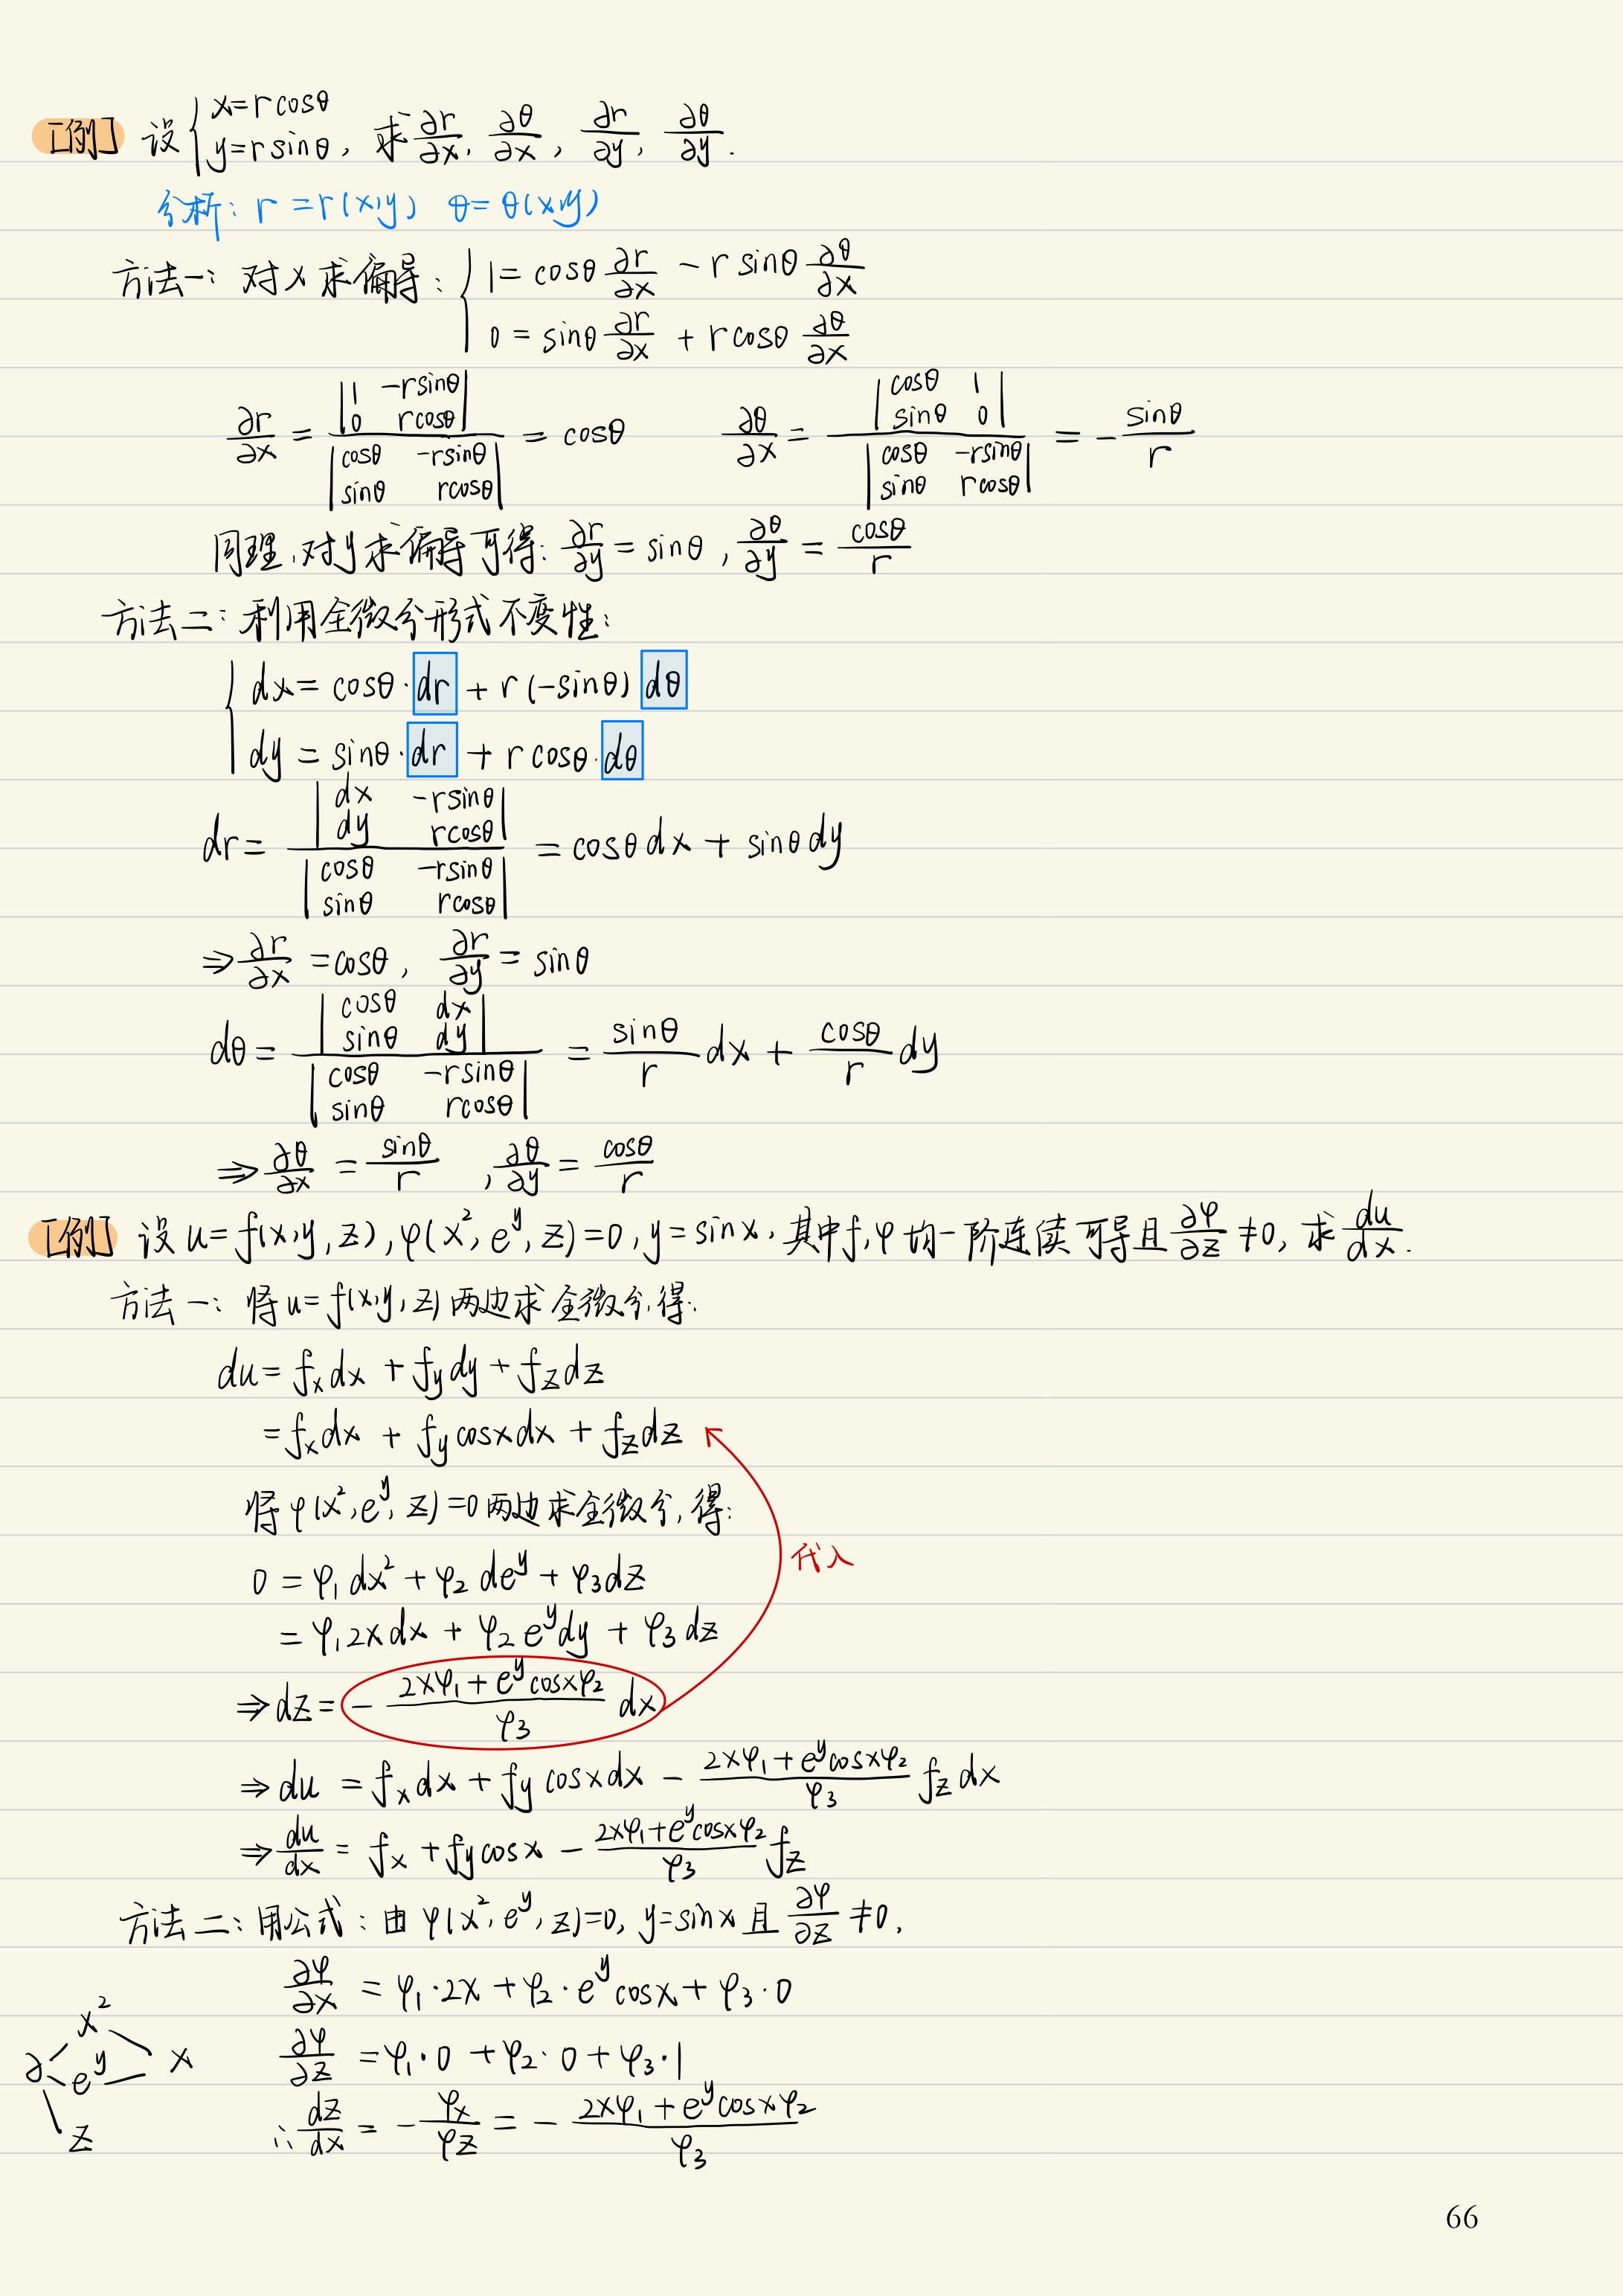 [例] 设 { x=rcosθ
y=rsinθ, 求 ∂r/∂x, ∂θ/∂x, ∂r/∂y, ∂θ/∂y.
分析: r=r(x,y) θ=θ(x,y)
方法一: 对x求偏导: { 1= cosθ ∂r/∂x - r sinθ ∂θ/∂x
0 = sinθ ∂r/∂x + rcosθ ∂θ/∂x
∂r/∂x = |1 -rsinθ; 0 rcosθ| / |cosθ -rsinθ; sinθ rcosθ| = cosθ ∂θ/∂x = |cosθ 1; sinθ 0| / |cosθ -rsinθ; sinθ rcosθ| = - sinθ/r
同理,对y求偏导可得: ∂r/∂y = sinθ, ∂θ/∂y = cosθ/r
方法二: 利用全微分形式不变性:
{ dx = cosθ·dr + r(-sinθ) dθ
dy = sinθ·dr + r cosθ·dθ
dr = |dx -rsinθ; dy rcosθ| / |cosθ -rsinθ; sinθ rcosθ| = cosθ dx + sinθ dy
⇒ ∂r/∂x = cosθ, ∂r/∂y = sinθ
dθ = |cosθ dx; sinθ dy| / |cosθ -rsinθ; sinθ rcosθ| = sinθ/r dx + cosθ/r dy
⇒ ∂θ/∂x = sinθ/r , ∂θ/∂y = cosθ/r
[例] 设 u=f(x,y,z), φ(x², e^y, z)=0, y=sinx, 其中f,φ均一阶连续可导且 ∂φ/∂z ≠0, 求 du/dx.
方法一: 将u=f(x,y,z)两边求全微分,得:
du = f_x dx + f_y dy + f_z dz
= f_x dx + f_y cosx dx + f_z dz
将φ(x², e^y, z)=0两边求全微分,得:
代入
0 = φ₁ dx² + φ₂ de^y + φ₃ dz
= φ₁ 2x dx + φ₂ e^y dy + φ₃ dz
⇒ dz = - (2xφ₁ + e^y cosxφ₂)/φ₃ dx
⇒ du = f_x dx + f_y cosx dx - (2xφ₁ + e^y cosxφ₂)/φ₃ f_z dx
⇒ du/dx = f_x + f_y cosx - (2xφ₁ + e^y cosxφ₂)/φ₃ f_z
方法二: 用公式: 由 φ(x², e^y, z)=0, y=sinx 且 ∂φ/∂z ≠0,
∂φ/∂x = φ₁·2x + φ₂·e^y cosx + φ₃·0
x²
∂ e^y x
z
∂φ/∂z = φ₁·0 + φ₂·0 + φ₃·1
∴ dz/dx = - φ_x/φ_z = - (2xφ₁ + e^y cosxφ₂)/φ₃
66